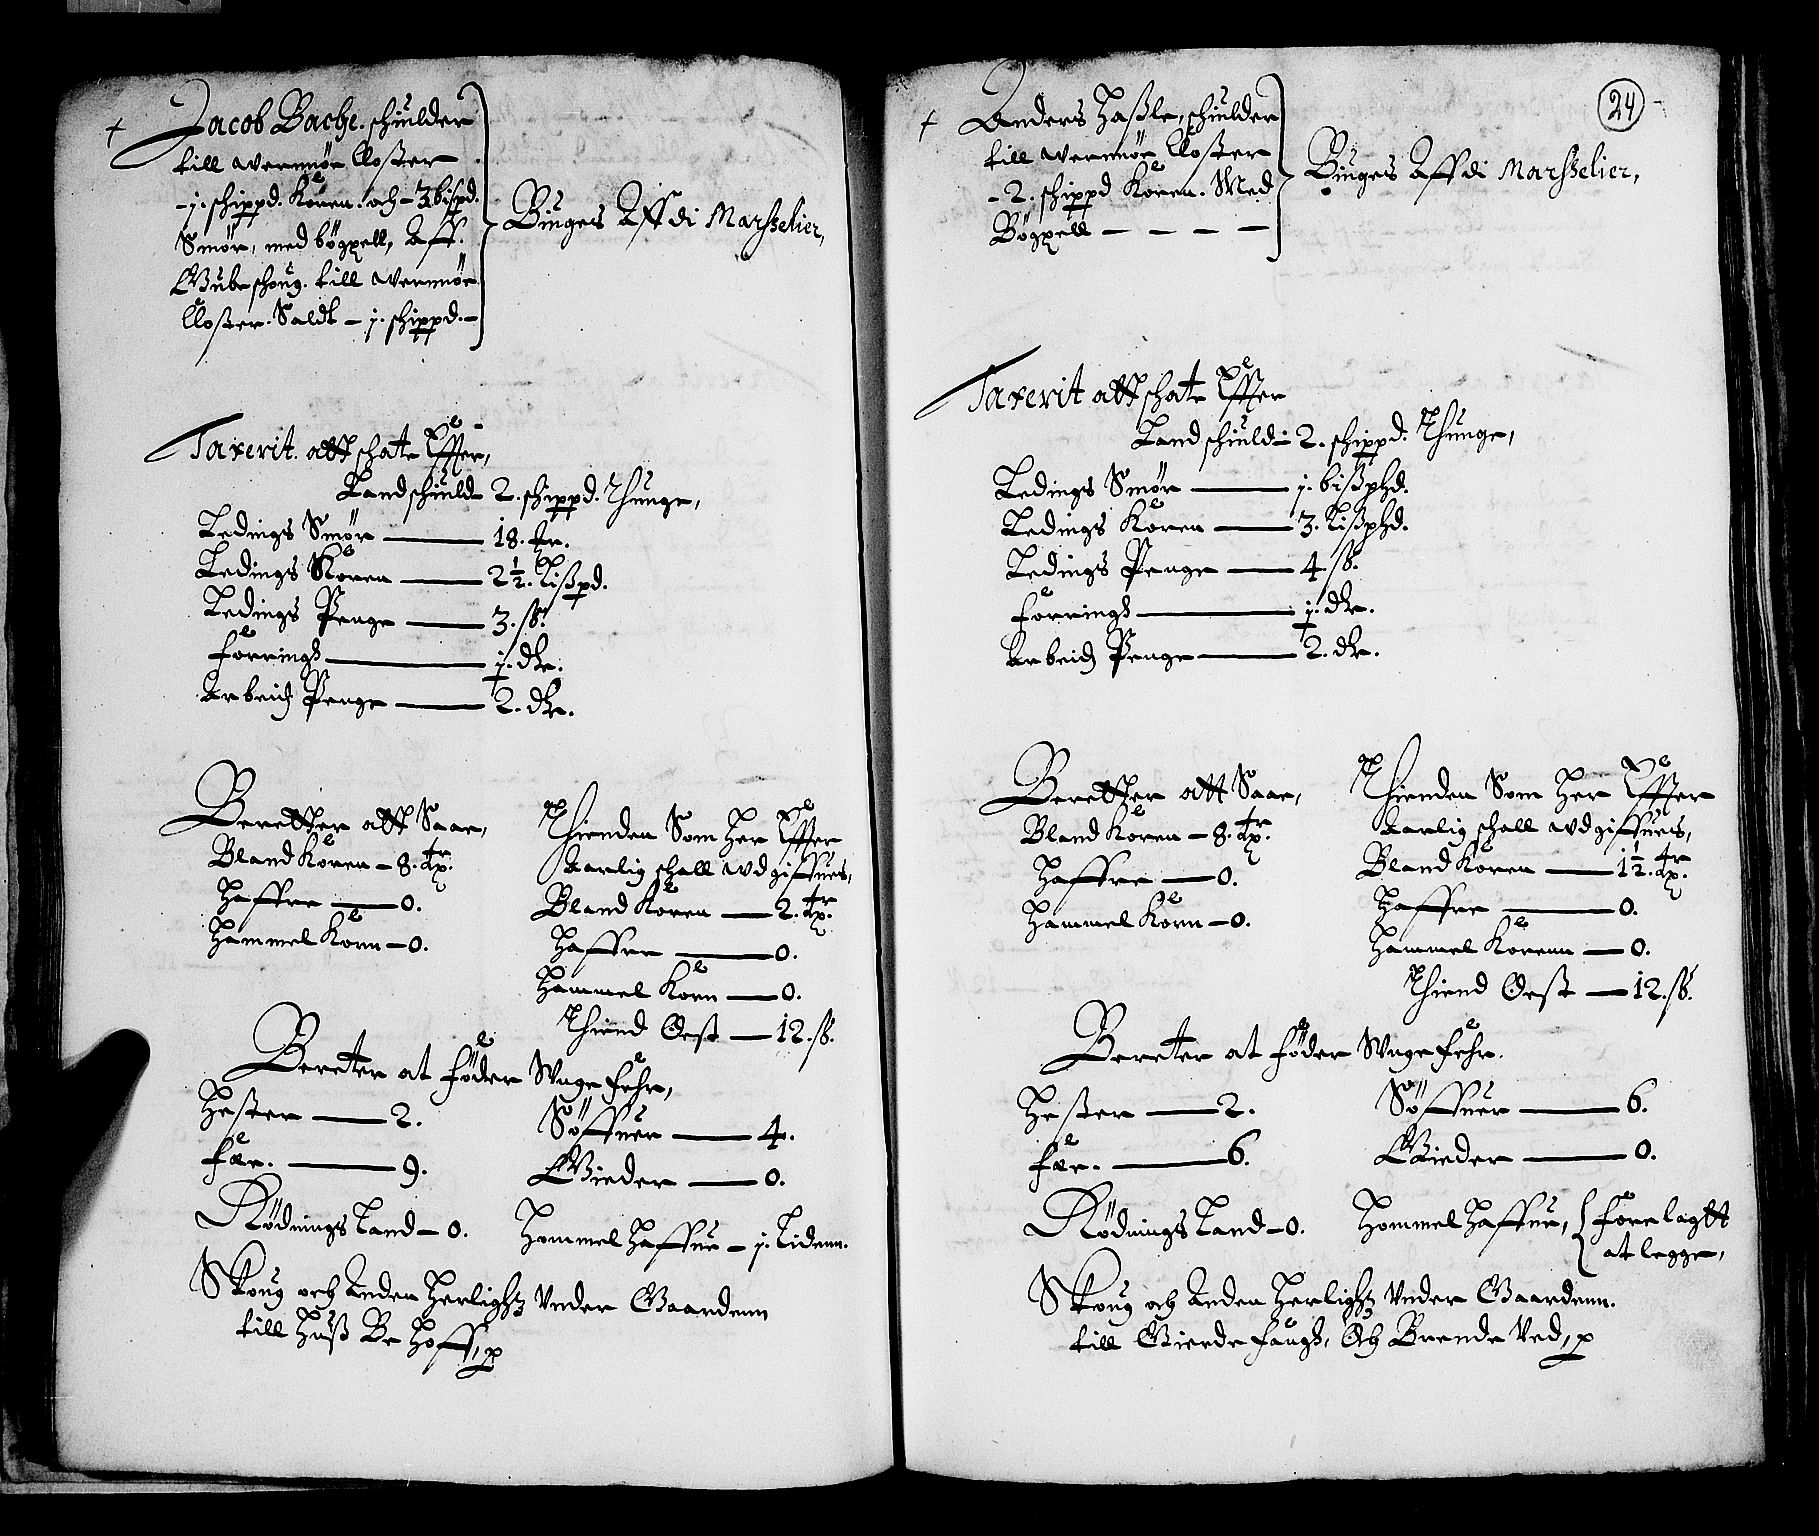 Jacob Bache. schulder
till Wernnøe Closter
- j. schippd. Korn. och - 3 bispd.
Smør, med bögxell, Aff.
Gube schoug. till Wernnøe
Closter. Saldt - j. schippd. -
Buiges Aff di Marsselier,
Taxerit. att schate Effter,
Landschuld 2. schippd. Thunge,
Ledings Smør — 18. mr.
Ledings Koren — 2½. Lispd.
Ledings Penge — 3. ß.
Forrings — j. dr.
Arbeids Penge — 2. dr.
Beretther att Saae,
Bland Koren - 8. tr.
Haffre — 0.
Hammel Korn - 0.
Thienden Som Her Effter
Aarlig schall Wdgiffues,
Bland Koren — 2. tr.
Haffre — 0.
Hammel Korn — 0.
Thiend Oest — 12. ß.
Bereter at føder Wnge fehr,
Hester — 2.
Fæe. — 9.
Söffuer — 4.
Gieder — 0.
Rödnings Land - 0.
Hommel Haffue - j. Liden.
Skoug och Anden Herlighz Vnder Gaardenn
till Huß Be Hoff, p
24
Anders Haßle, schulder
till Wernnøe Closter
- 2. schippd Koren. Med
Bögxell — — — —
Buiges Aff di Marsselier,
Taxerit att schate Effter
Landschuld - 2. schippd. Thunge,
Ledings Smør — j. bißphd.
Ledings Koren — 3. Lißphd.
Ledings Penge — 4 ß.
Forrings — j. dr.
Arbeids Penge — 2. dr.
Beretther att Saae,
Bland Koren - 8. tr.
Haffre — 0.
Hammel Korn - 0.
Thienden Som Her Effter
Aarlig schall Wdgiffues,
Bland Koren — 1½. tr.
Haffre — 0.
Hammel Korenn — 0.
Thiend Oest — 12. ß.
Bereter at føder Wnge fehr.
Hester — 2.
Fæe. — 6.
Söffuer — 6.
Gieder — 0.
Rödnings Land - 0.
Hommel Haffue, { Forelagtt
at legge,
Skoug och Anden Herlighz Vnder Gaardenn.
till Gierde faugs, Och Brende Ved, p